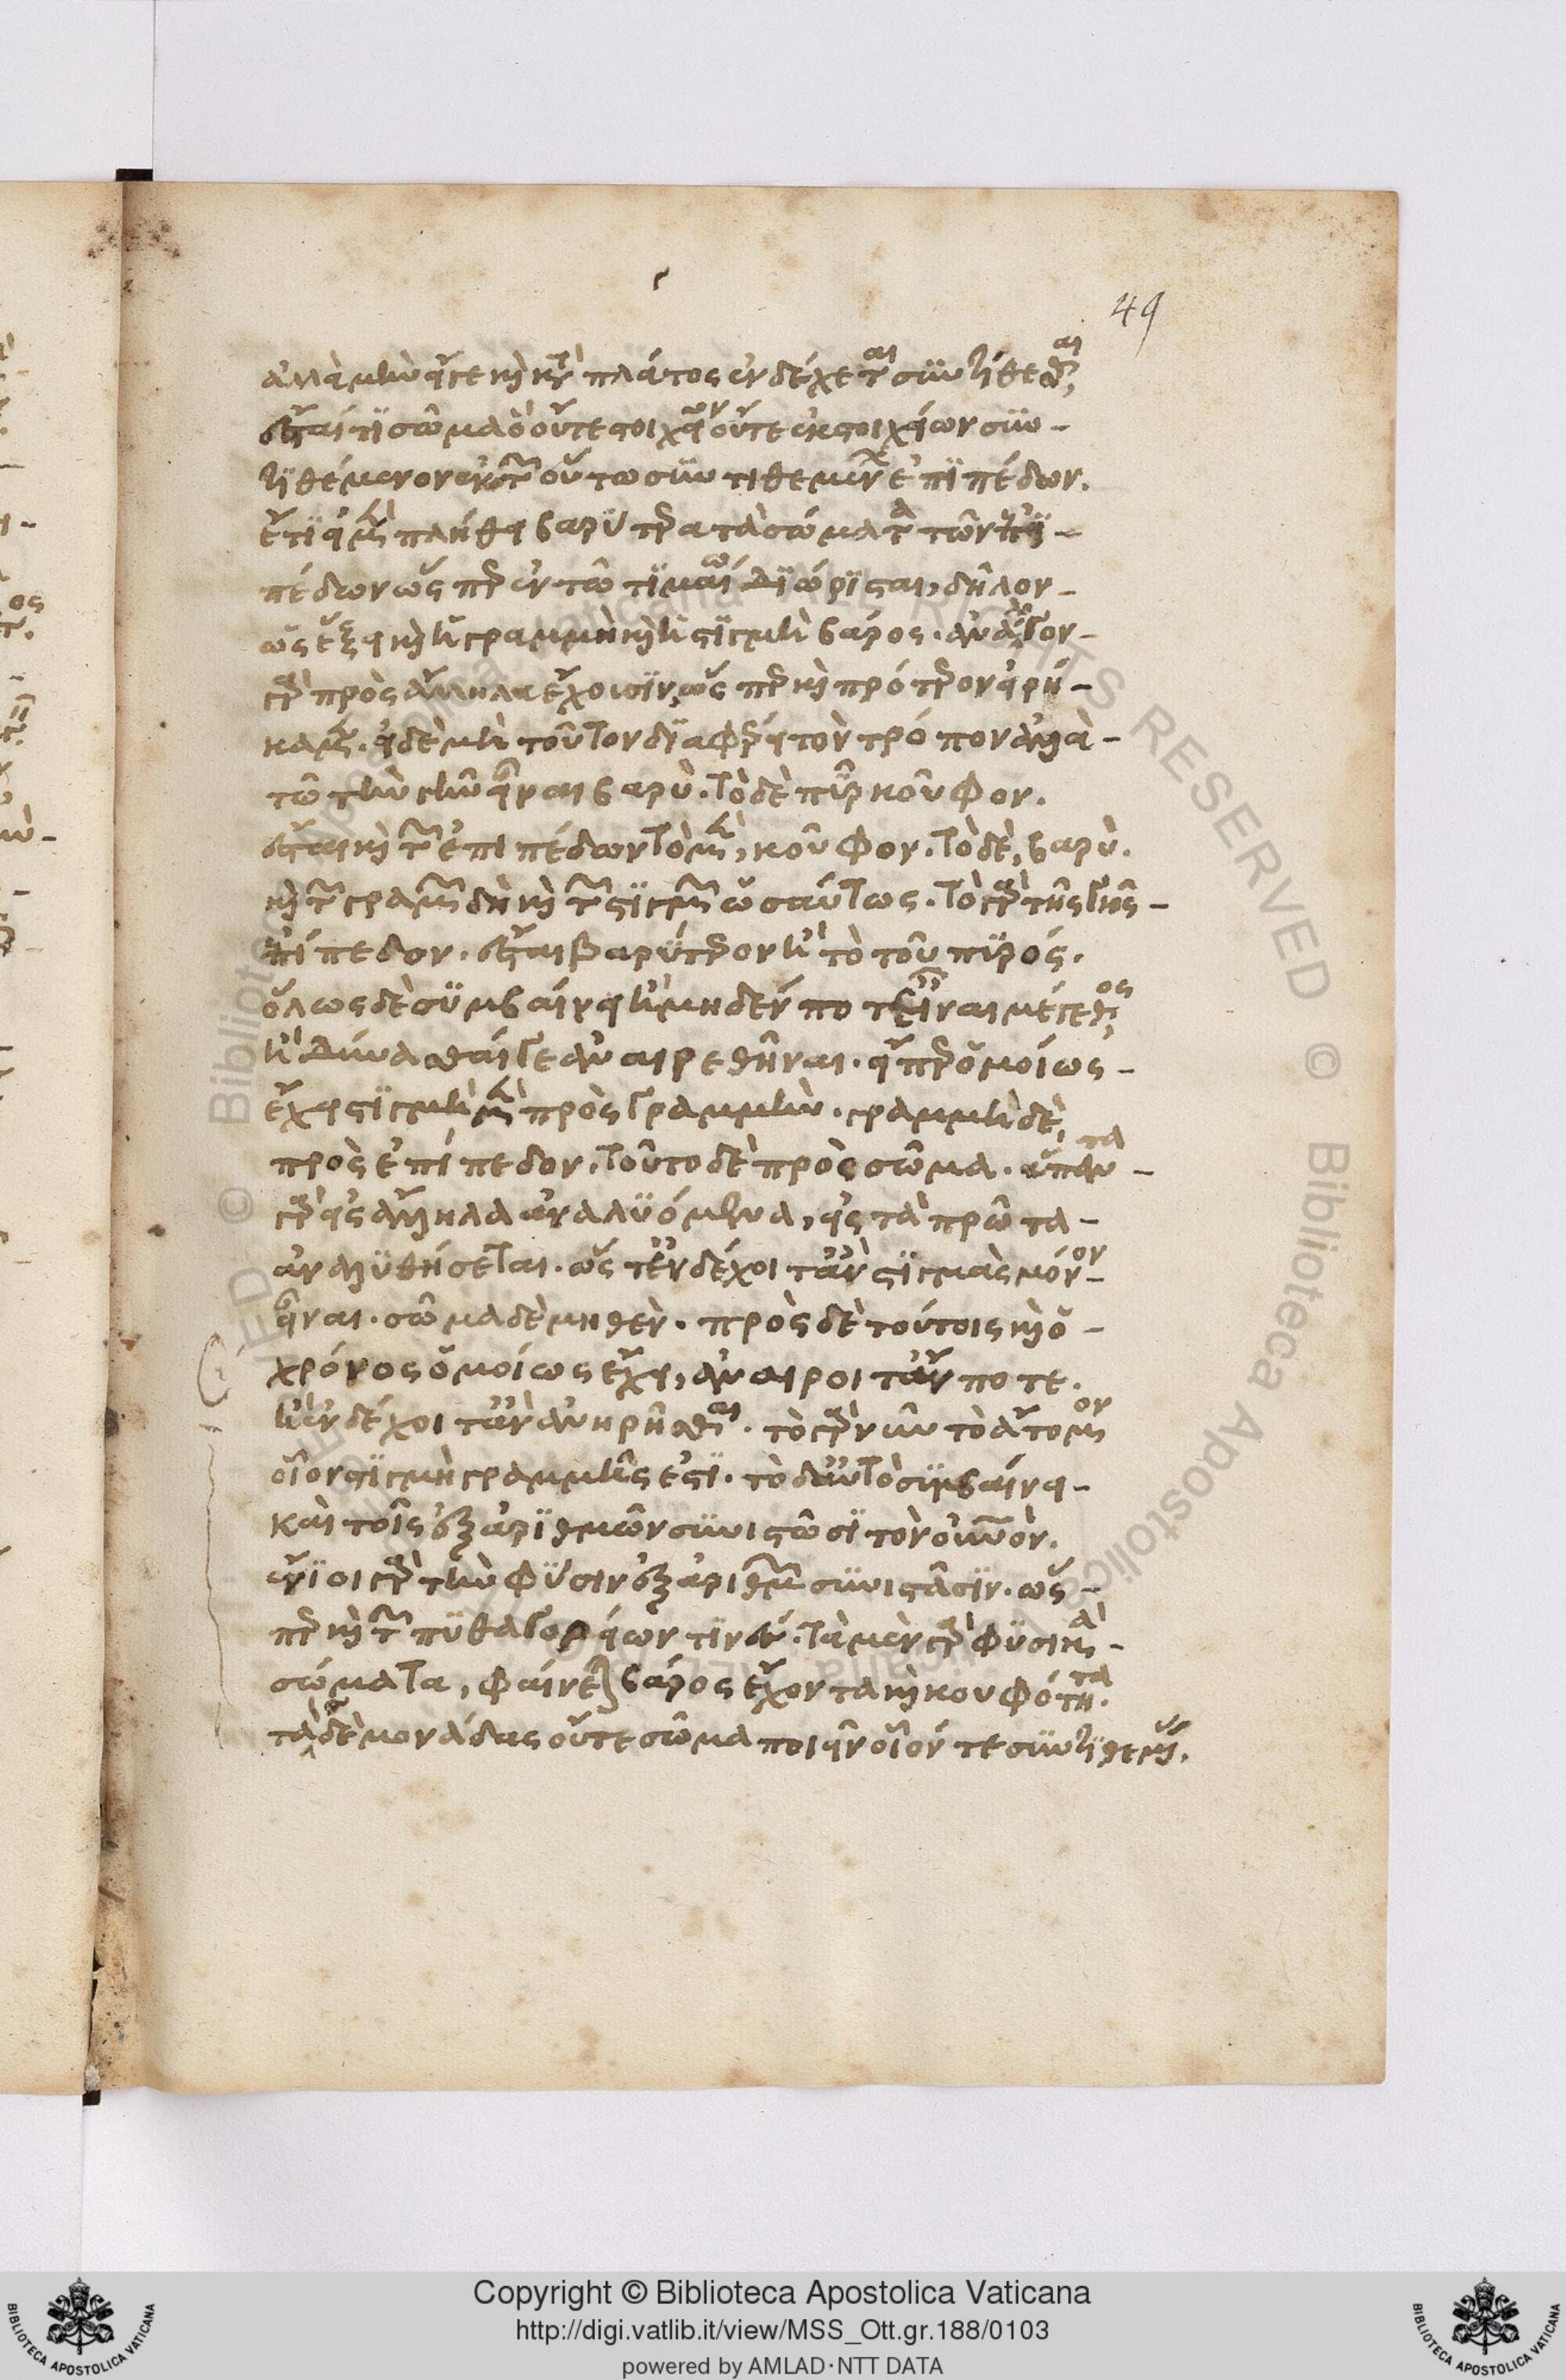 49
ἀλλὰ μὴν εἴ γε καὶ κατὰ πλάτος ἐνδέχεται συντίθεσθαι,
ἔσται τι σῶμα ὃ οὔτε στοιχεῖον οὔτε ἐκ στοιχείων συν-
τιθέμενον ἐκ τῶν οὕτω συντιθεμένων ἐπιπέδων.
ἔτι εἰ μὲν πλήθει βαρύτερα τὰ σώματα τῶν ἐπι-
πέδων ὥσπερ ἐν τῷ τιμαίῳ διώρισται, δῆλον
ὡς ἕξει καὶ ἡ γραμμὴ καὶ ἡ στιγμὴ βάρος. ἀνάλογον
γὰρ πρὸς ἄλληλα ἔχουσιν, ὥσπερ καὶ πρότερον εἰρή-
καμεν. εἰ δὲ μὴ τοῦτον διαφέρει τὸν τρόπον ἀλλὰ
τῷ τὴν γῆν εἶναι βαρὺ. τὸ δὲ πῦρ κοῦφον.
ἔσται καὶ τῶν ἐπιπέδων τὸ μὲν, κοῦφον. τὸ δὲ, βαρὺ.
καὶ τῶν γραμμῶν δὴ καὶ τῶν στιγμῶν ὡσαύτως. τὸ γὰρ τῆς γῆς
ἐπίπεδον. ἔσται βαρύτερον ἢ τὸ τοῦ πυρός.
ὅλως δὲ συμβαίνει ἢ μηδέν ποτ' εἶναι μέγεθος,
ἢ δύνασθαί γε ἀναιρεθῆναι. εἴπερ ὁμοίως
ἔχει στιγμὴ μὲν πρὸς γραμμὴν. γραμμὴ δὲ,
πρὸς ἐπίπεδον. τοῦτο δὲ πρὸς σῶμα. πάντα
γὰρ εἰς ἄλληλα ἀναλυόμενα, εἰς τὰ πρῶτα
ἀναλυθήσεται. ὥστ' ἐνδέχοιτ' ἂν στιγμὰς μόνον
εἶναι. σῶμα δὲ μηθὲν. πρὸς δὲ τούτοις καὶ ὁ
χρόνος ὁμοίως ἔχει, ἀναιροῖτ' ἄν ποτε.
ἢ ἐνδέχοιτ' ἂν ἀνηρῆσθαι. τὸ γὰρ νῦν τὸ ἄτομον
οἷον στιγμὴ γραμμῆς ἐστι. τὸ δ' αὐτὸ συμβαίνει
καὶ τοῖς ἐξ ἀριθμῶν συνιστῶσι τὸν οὐρανὸν.
ἔνιοι γὰρ τὴν φύσιν ἐξ ἀριθμῶν συνιστᾶσιν. ὥσ-
περ καὶ τῶν πυθαγορείων τινές. τὰ μὲν γὰρ φυσικὰ
σώματα, φαίνεται βάρος ἔχοντα καὶ κουφότητα.
τὰς δὲ μονάδας οὔτε σῶμα ποιεῖν οἷόν τε συντιθεμένας,
Copyright © Biblioteca Apostolica Vaticana
http://digi.vatlib.it/view/MSS_Ott.gr.188/0103
powered by AMLAD·NTT DATA